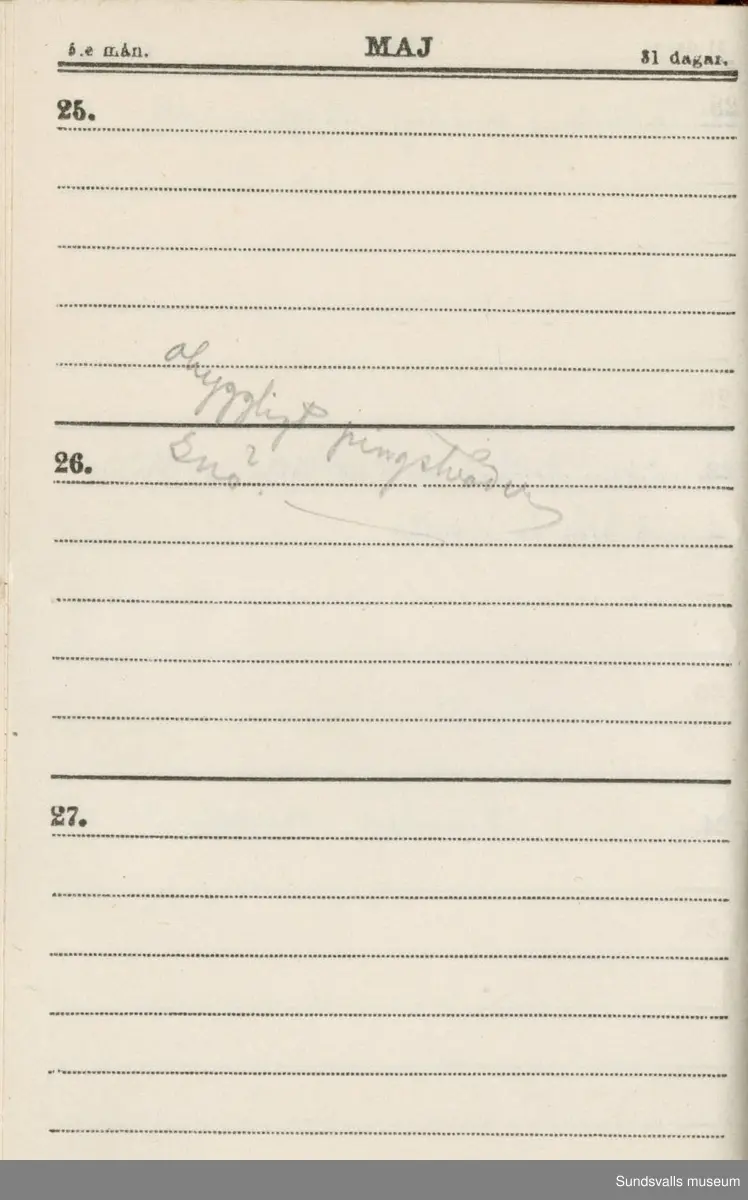 5.e mån.
MAJ
31 dagar.
25.
ohyggligt pingstväder
26.
Snö?
27.
Sundsvalls museum